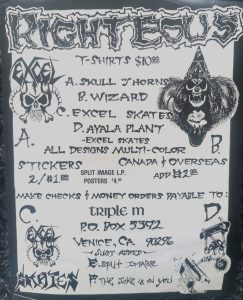 RIGHTEOUS
T-SHIRTS $10.00
EXCEL
A. SKULL THORNS
B. WIZARD
C. EXCEL SKATES
D. AYALA PLANT
-EXCEL SKATES
ALL DESIGNS MULTI-COLOR
A.
B.
STICKERS
2/$1.00
SPLIT IMAGE L.P.
POSTERS $4.00
CANADA & OVERSEAS
ADD $2.00
MAKE CHECKS & MONEY ORDERS PAYABLE TO:
C.
D.
TRIPLE M
P.O. BOX 5372
VENICE, CA. 90296
-JUST ADDED-
E. SPLIT IMAGE
F. THE JOKE IS ON YOU
EXCEL
SKATES